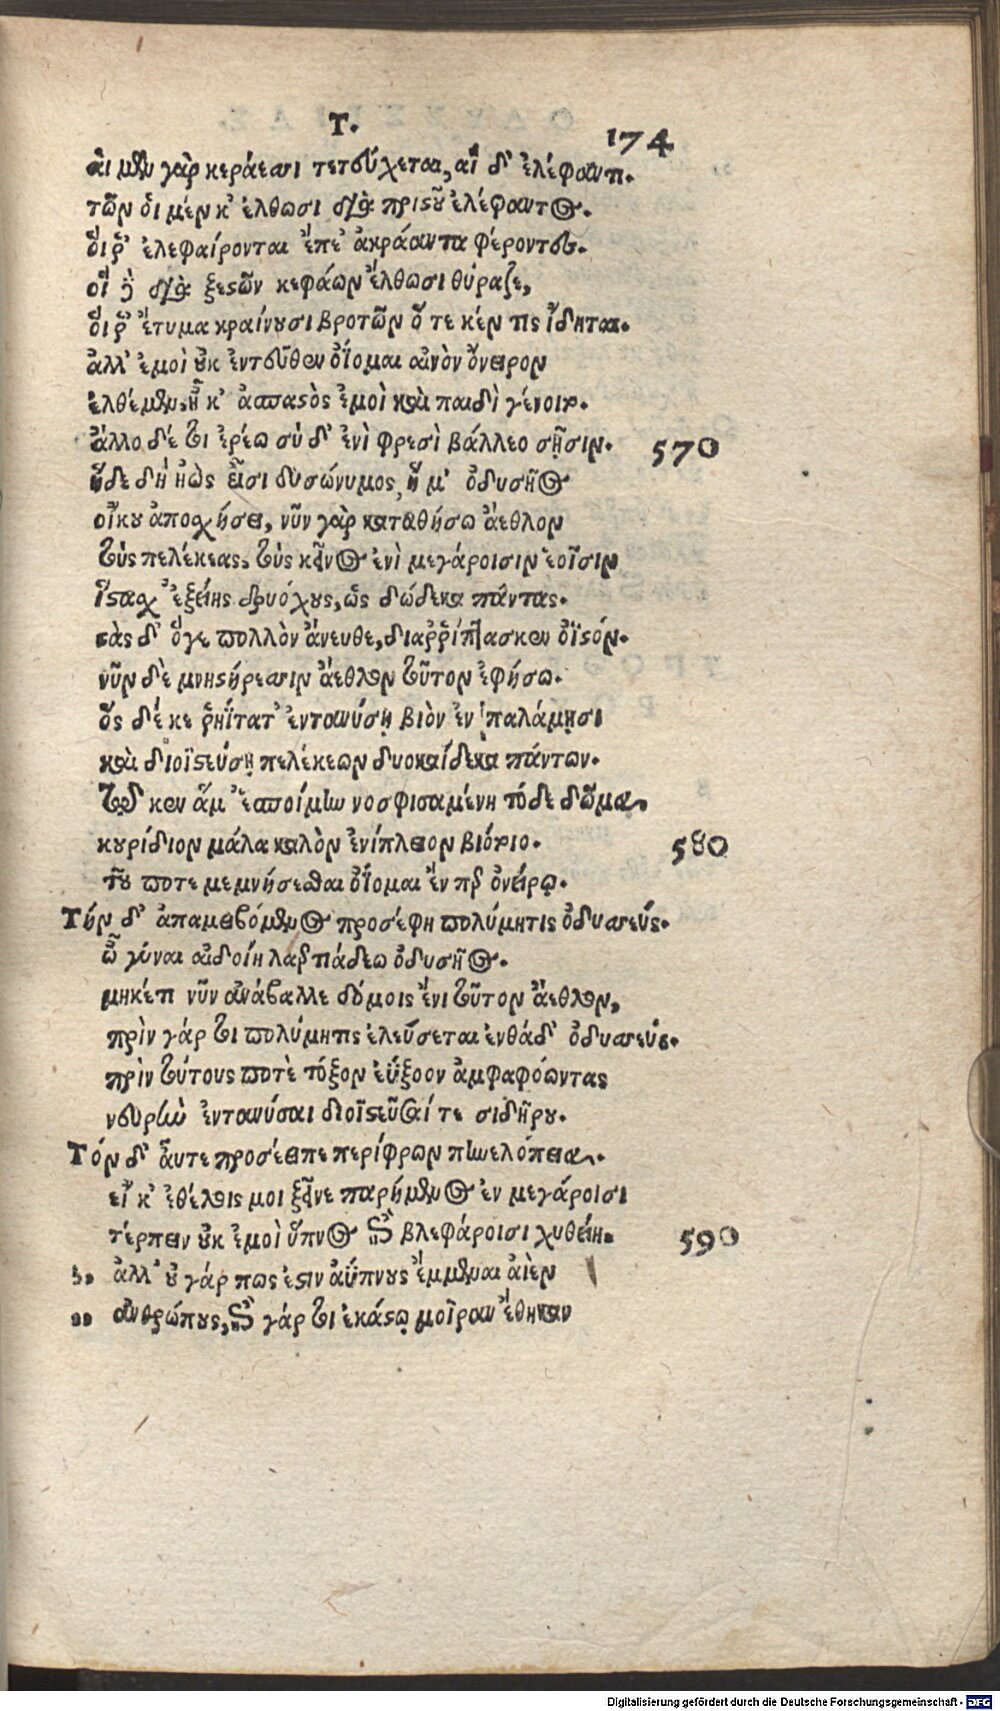 Τ.
174
αἱ μὲν γὰρ κεράεσσι τετεύχεται, αἵ δ' ἐλέφαντι.
τῶν οἱ μέν κ' ἔλθωσι διὰ πριστοῦ ἐλέφαντος.
οἵ ῥ' ἐλεφαίρονται ἔπε' ἀκράαντα φέροντες.
οἵ δὲ διὰ ξεστῶν κεράων ἔλθωσι θύραζε,
οἵ ῥ' ἔτυμα κραίνουσι βροτῶν ὅ τε κέν τις ἴδηται.
ἀλλ' ἐμοὶ οὐκ ἐντεῦθεν ὀΐομαι αἰνὸν ὄνειρον
ἐλθέμεν, ἦ κ' ἀσπαστὸς ἐμοὶ καὶ παιδὶ γένοιτ.
ἄλλο δέ τοι ἐρέω σύ δ' ἐνὶ φρεσὶ βάλλεο σῇσιν. 570
ἥδε δὴ ἠὼς εἶσι δυσώνυμος, ἥ μ' ὀδυσῆος
οἴκου ἀποσχήσει, νῦν γὰρ καταθήσω ἄεθλον
τοὺς πελέκεας. τοὺς κεῖνος ἐνὶ μεγάροισιν ἑοῖσιν
ἵστασχ' ἑξείης δρυόχους, ὣς δώδεκα πάντας.
στὰς δ' ὅγε πολλὸν ἄνευθε, διαῤῥίπτασκεν ὀϊστόν.
νῦν δὲ μνηστήρεσσιν ἄεθλον τοῦτον ἐφήσω.
ὃς δέ κε ῥηΐτατ' ἐντανύσῃ βιὸν ἐν παλάμῃσι
καὶ διοϊστεύσῃ πελέκεων δυοκαίδεκα πάντων.
τῷδέ κεν ἅμ' ἑσποίμην νοσφισαμένη τόδε δῶμα,
κουρίδιον μάλα καλὸν ἐνίπλειον βιότοιο. 580
τοῦ ποτε μεμνήσεσθαι ὀΐομαι ἔν περ ὀνείρῳ.
Τὴν δ' ἀπαμειβόμενος προσέφη πολύμητις ὀδυσσεύς.
ὦ γύναι αἰδοίη λαερτιάδεω ὀδυσῆος.
μηκέτι νῦν ἀνάβαλλε δόμοις ἔνι τοῦτον ἄεθλον,
πρὶν γάρ τοι πολύμητις ἐλεύσεται ἐνθάδ' ὀδυσσεύς.
πρὶν τούτους ποτὲ τόξον εὔξοον ἀμφαφόωντας
νευρὴν ἐντανύσαι διοϊστεῦσαί τε σιδήρου.
Τόν δ' αὖτε προσέειπε περίφρων πηνελόπεια.
εἴ κ' ἐθέλοις μοι ξεῖνε παρήμενος ἐν μεγάροισι
τέρπειν οὔκ ἐμοὶ ὕπνος ἐπὶ βλεφάροισι χυθείη. 590
,, ἀλλ' οὐ γάρ πως ἔστιν ἀΰπνους ἔμμεναι αἰὲν
,, ἀνθρώπους, ἐπὶ γάρ τοι ἑκάστῳ μοῖραν ἔθηκαν
Digitalisierung gefördert durch die Deutsche Forschungsgemeinschaft - DFG